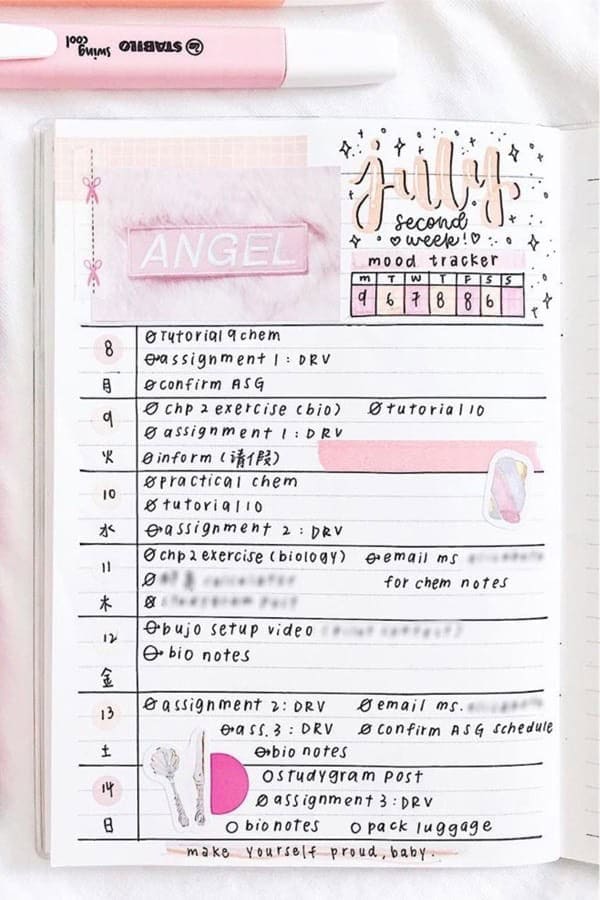 swing cool STABILO
ANGEL
july
second
week!
mood tracker
M T W T F S S
9 6 7 8 8 6
8 tutorial 9 chem
assignment 1: DRV
月 confirm ASG
9 chp 2 exercise (bio) tutorial 10
assignment 1: DRV
火 inform (请假)
10 practical chem
tutorial 10
水 assignment 2: DRV
11 chp 2 exercise (biology) email ms
for chem notes
木
12 bujo setup video
bio notes
金
13 assignment 2: DRV email ms.
ass. 3: DRV confirm ASG schedule
土 bio notes
14 studygram post
assignment 3: DRV
日 bio notes pack luggage
make yourself proud, baby.